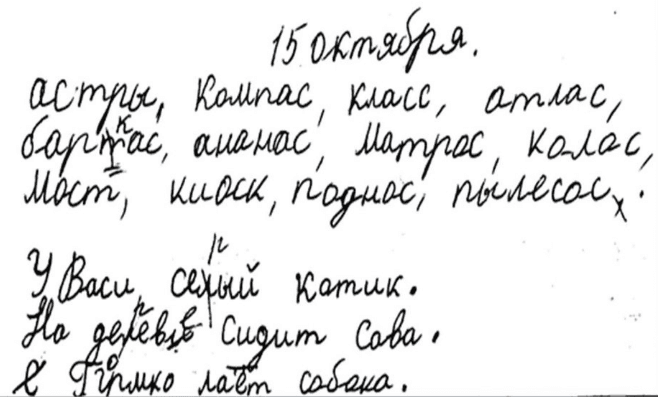 15 октября.
астры, компас, класс, атлас,
баркас, ананас, матрас, колос,
мост, киоск, поднос, пылесос.
У Васи серый котик.
На дереве сидит сова.
Громко лает собака.